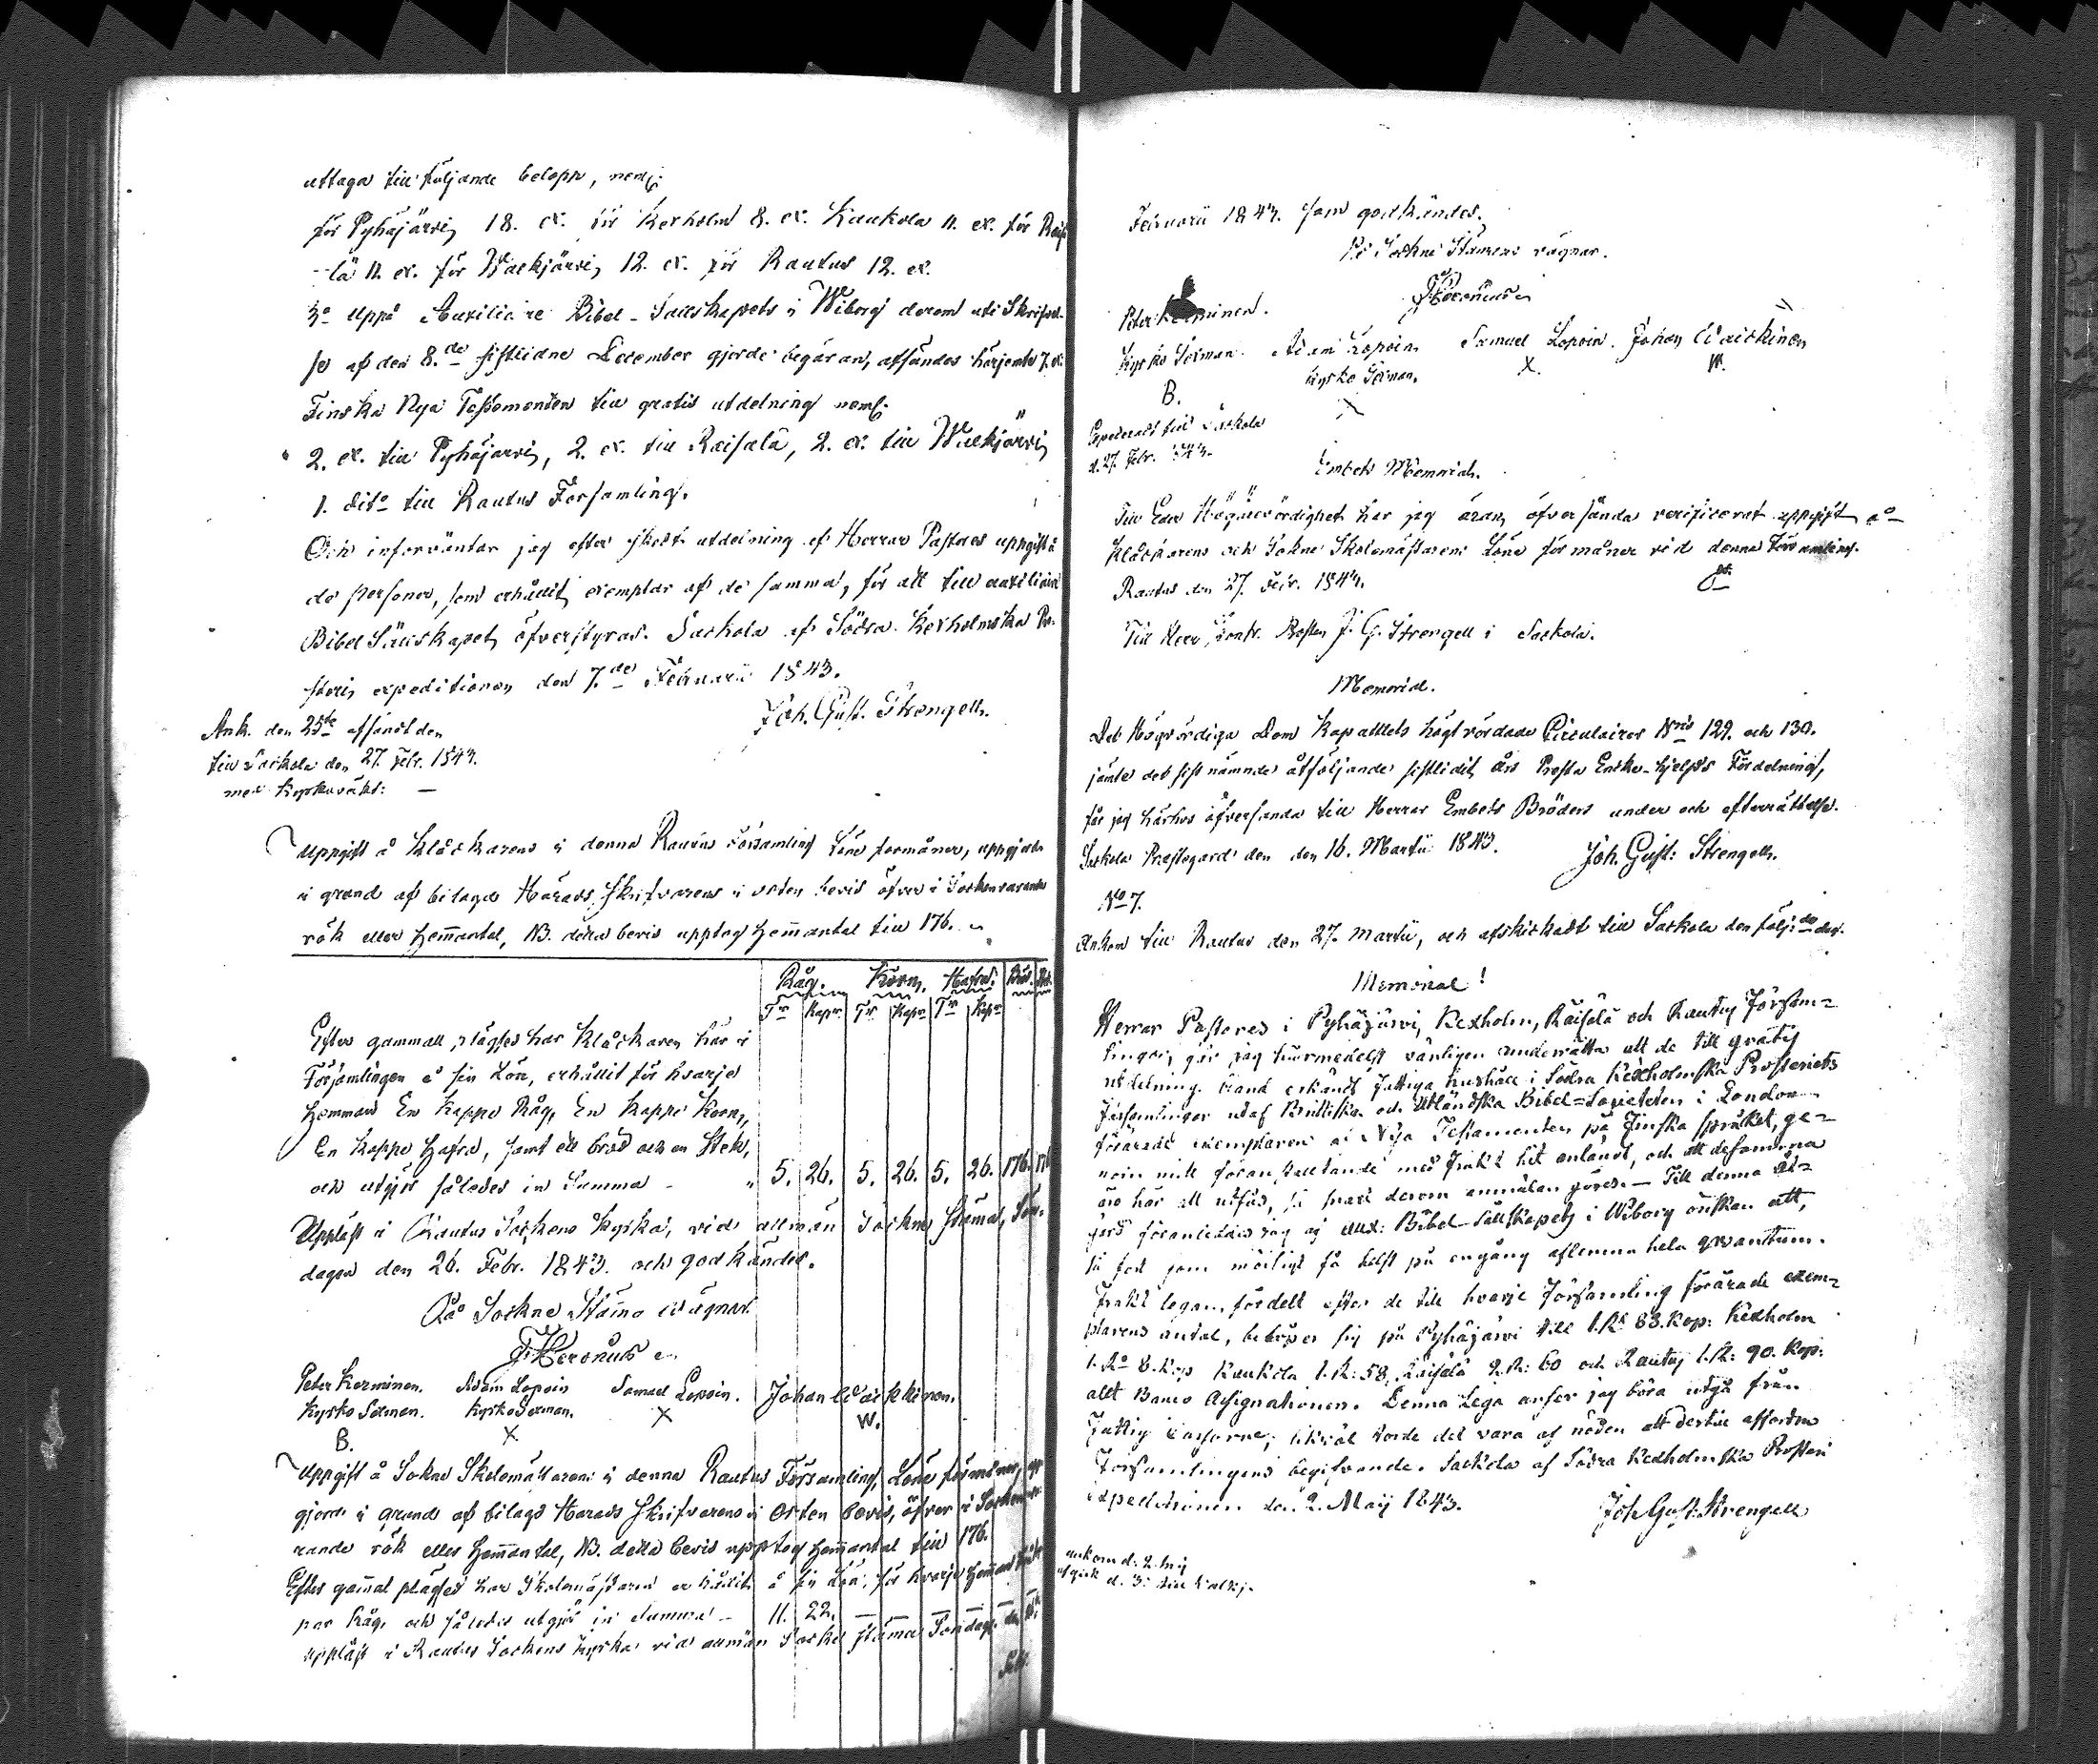 uttaga till följande belopp, neml:
för Pyhäjärvi 18. ex. för Kexholm 8. ex. Kaukola 11. ex. för Räis
lä 11. ex. för Walkjärvi 12. ex. för Rautus 12. ex.
3o Uppå Auxiliaire Bibel-Sällskapets i Wiborg derom uti Skrifvel-
se af den 8.de sistlidne December gjorde begäran, afsändes härjemte 7. ex.
Finska Nya Testamenten till gratis utdelning neml:
2. ex. till Pyhäjärvi, 2. ex. till Räisälä, 2. ex. till Walkjärvi
1. dito till Rautus Församling.
Och inforväntar jag efter skedd utdelning af Herrar Pastores uppgift å
de personer, som erhållit exemplar af de samma, för att till auxiliaire
Bibel Sällskapet öfverstyras. Sackola af Södra Kexholmska Pro-
steris expeditionen den 7.de Februarii 1843.
Joh. Gust. Strengell.
Ank. den 25te afsändt den
till Sackola den 27. Febr. 1843.
med Kyrkovakt: —
Uppgift å Klåckarens i denna Rautus Församling Löne förmåner, uppgjord
i grund af bilagde Härads Skrifvarens i orten bevis öfver i Socken varande
rök eller Hemmantal, NB. detta bevis upptog Hemmantal till 176.
Råg. Korn. Hafra. Bröd.
Tr Kapr Tr Kapr Tr Kapr
Efter gammall plägsed har Klåckaren här i
Församlingen å sin Lön, erhållit för hvarje
Hemman En Kappe Råg, En Kappe Korn,
En Kappe Hafra, samt ett bröd och en Stek,
och utgör således in Summa - " 5. 26. 5. 26. 5. 26. 176. 176
Uppläst i Rautus Sockens Kyrka, vid allmän Sockne Stämma, Sön-
dagen den 26. Febr. 1843. och godkändes.
På Sockne Stämmo vägnar.
J. Heronius
Peter Kerminen. Adam Lopoin Samuel Lopoin. Johan Waickinen.
Kyrko Setman. Kyrko Setman. X W.
B. X
Uppgift å Sokne Skolemästarens i denna Rautus Församling, Löne förmåner, upp
gjorde i grund af bilagd Härads Skrifvarens i Orten bevis, öfver i Socken va
rande rök eller Hemmantal, NB. detta bevis upptog Hemmantal till 176.
Efter gammal plägsed har Skolemästaren erhållit å sin Lön, för hvarje Hemman
par Råg, och således utgör in Summa - 11. 22. — — — —
Uppläst i Rautus Sockens Kyrka vid allmän Sockne Stämma Söndagen den 26
Febr.
Februarii 1843. som godkändes.
På Sockne Stämmans vägnar.
J. Heronius
Peter Kerminen.
Kyrko Setman. Adam Lopoin Samuel Lopoin. Johan Waickinen
Kyrko Setman. X. W.
B. X
Expedierat till Sackola
d. 27. Febr. 1843.
Embets Memorial.
Till Eder Högärevördighet har jag äran öfversända verificerat uppgift å
Klåckarens och Sokne Skolemästarens Löne förmåner vid denna Församling.
Rautus den 27. Febr. 1843.
Till Herr Contr. Prosten J. G. Strengell i Sackola.
Memorial.
Det Högvördiga Dom Kapittlets högtvördade Circulairer Nris 129. och 130.
jämte det sist nämnde åtföljande sistlidit års Presta Enke-hjelps Fördelning,
får jag härhos öfversända till Herrar Embets Bröders under och efterrättelse.
Sackola Prestegård den 16. Martii 1843. Joh. Gust: Strengell.
No 7.
Ankom till Rautus den 27. Martii, och afskickadt till Sackola den följ:de dag.
Memorial!
Herrar Pastores i Pyhäjärvi, Kexholm, Räisälä och Rautus Försam-
lingar, går jag härmedelst vänligen underrätta att de till gratis
utdelning bland erkändt fattiga hushåll i Södra Kexholmska Prosteriets
Församlingar utaf Brittiska och Utländska Bibel-Societeten i London
förärade exemplaren af Nya Testamenten på Finska språket, ge-
nom mitt föranstaltande med frakt hit anländt, och att desamma
äro här att utfås, så snart derom anmälan göres. — Till denna åt-
gärd föranleddes jag af Aux: Bibel-Sällskapets i Wiborg önskan att,
så fort som möjligt få helst på engång aflemna hela quantum.
Frakt legan, fördelt efter de till hvarje Församling förärade exem-
plarens antal, belöper sig på Pyhäjärvi till 1. R: 83. Kop: Kexholm
1. Ro 8. Kop Kaukola 1. R: 58, Räisälä 2. R: 60 och Rautus 1. R: 90. Kop:
allt Banco Assignationer. Denna Lega anser jag böra utgå från
Fattig Cassorne; likväl torde det vara af nöden att dertill affordra
Församlingens begifvande. Sackola af Södra Kexholmska Prosteri
Expeditionen den 2. Maij 1843. Joh Gust. Strengell
ankom d. 2. Maj
afgick d. 3. till Walkj.